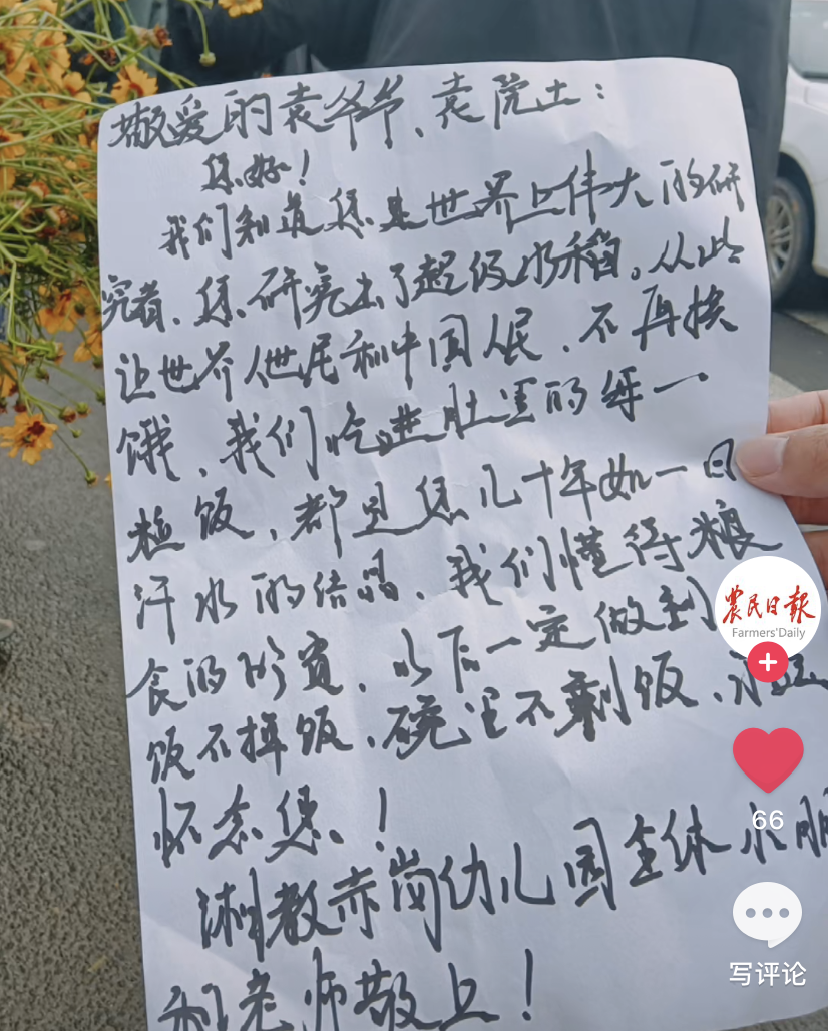 敬爱的袁爷爷、袁院士：
您好！
我们知道您是世界上伟大的研
究者、您研究出了超级水稻。从此
让世界人民和中国人民、不再挨
饿，我们吃进肚里的每一
粒饭，都是您几十年如一日
汗水的结晶、我们懂得粮
食的珍贵、以后一定做到
饭不掉饭、碗里不剩饭、永远
怀念您！
湘教赤岗幼儿园全体小朋
和老师敬上！
農民日報
Farmers'Daily
66
写评论